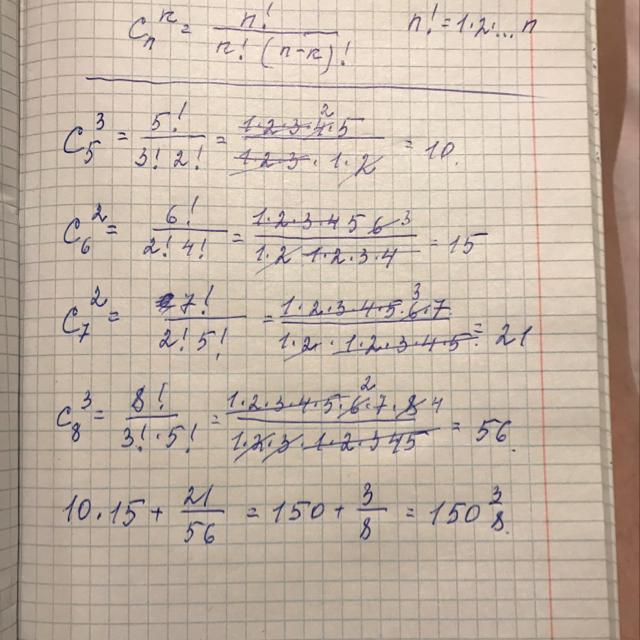 Cₙᵏ = n! / k! (n-k)! n! = 1·2·...n
C₅³ = 5! / 3! 2! = 1·2·3·4·5 2 / 1·2·3·1·2 = 10.
C₆² = 6! / 2! 4! = 1·2·3·4·5 6 3 / 1·2 1·2·3·4 = 15
C₇² = 7! / 2! 5! = 1·2·3·4·5·6·7 3 / 1·2·1·2·3·4·5 = 21
C₈³ = 8! / 3!·5! = 1·2·3·4·5·6·7·8 2 4 / 1·2·3 1·2·3 4 5 = 56.
10·15 + 21/56 = 150 + 3/8 = 150 3/8.